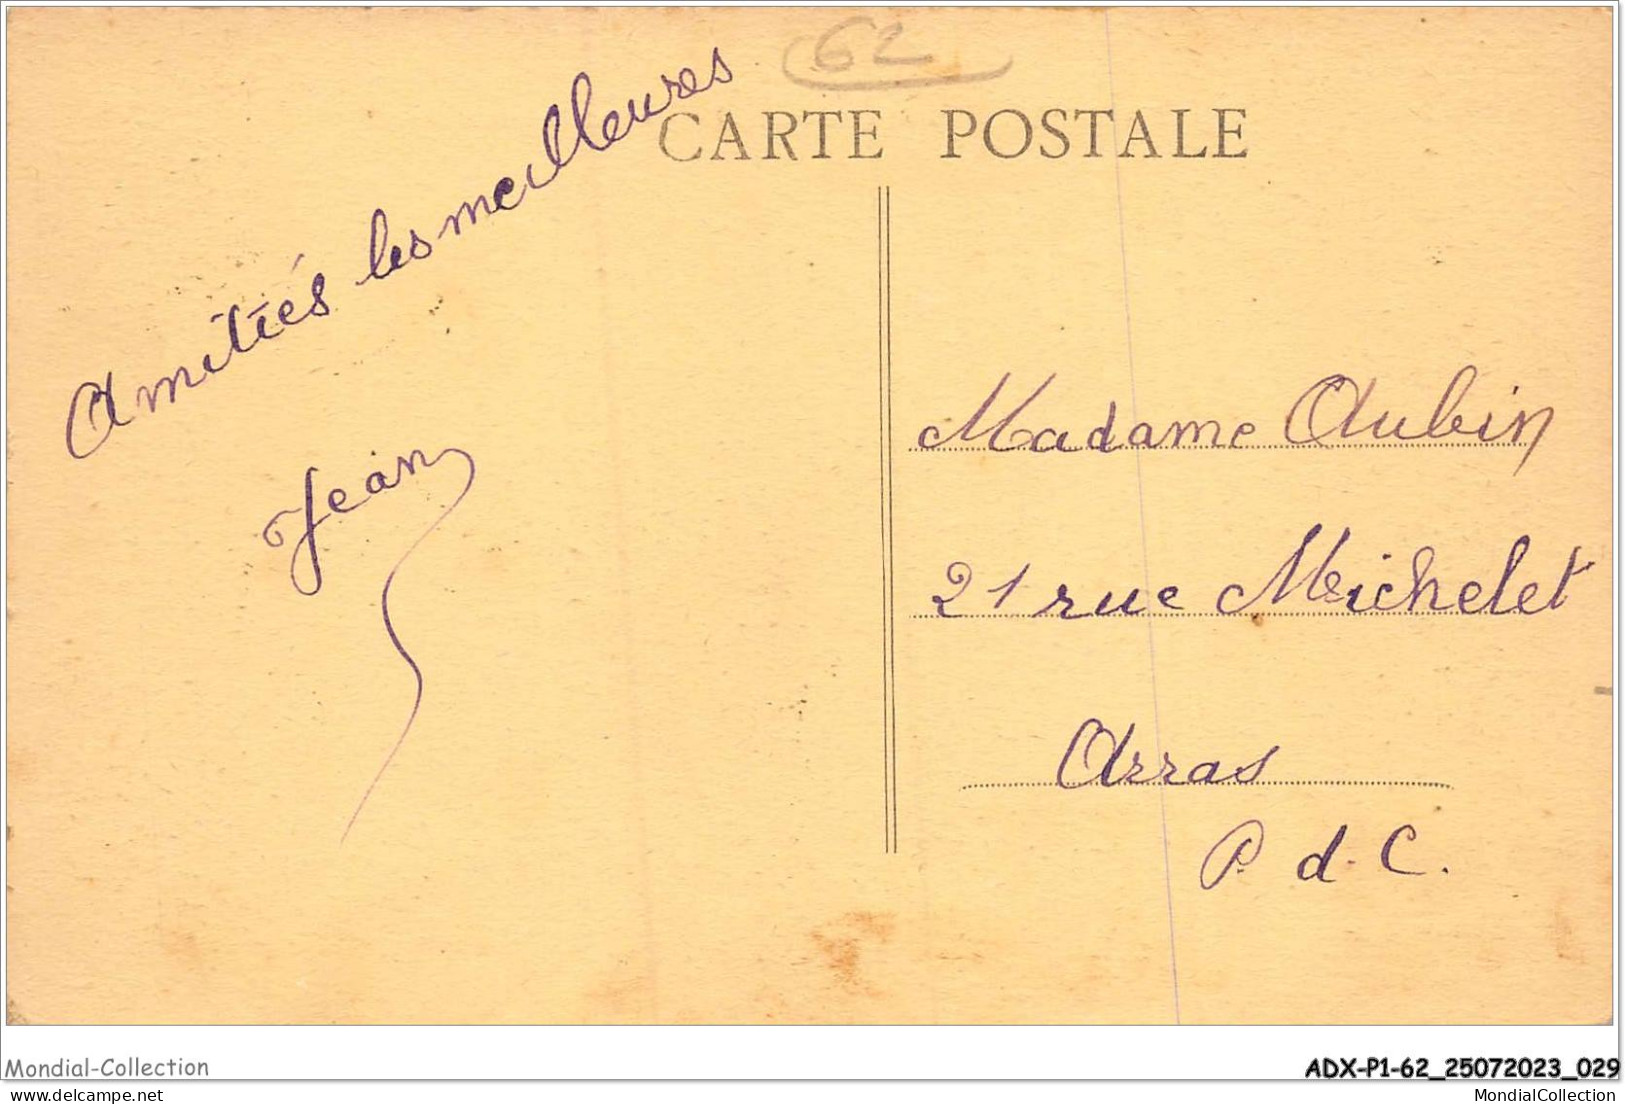 62
CARTE POSTALE
Amitiés les meilleures
Jean
Madame Aubin
21 rue Michelet
Arras
P. d. C.
Mondial-Collection
ADX-P1-62_25072023_029
www.delcampe.net
MondialCollection